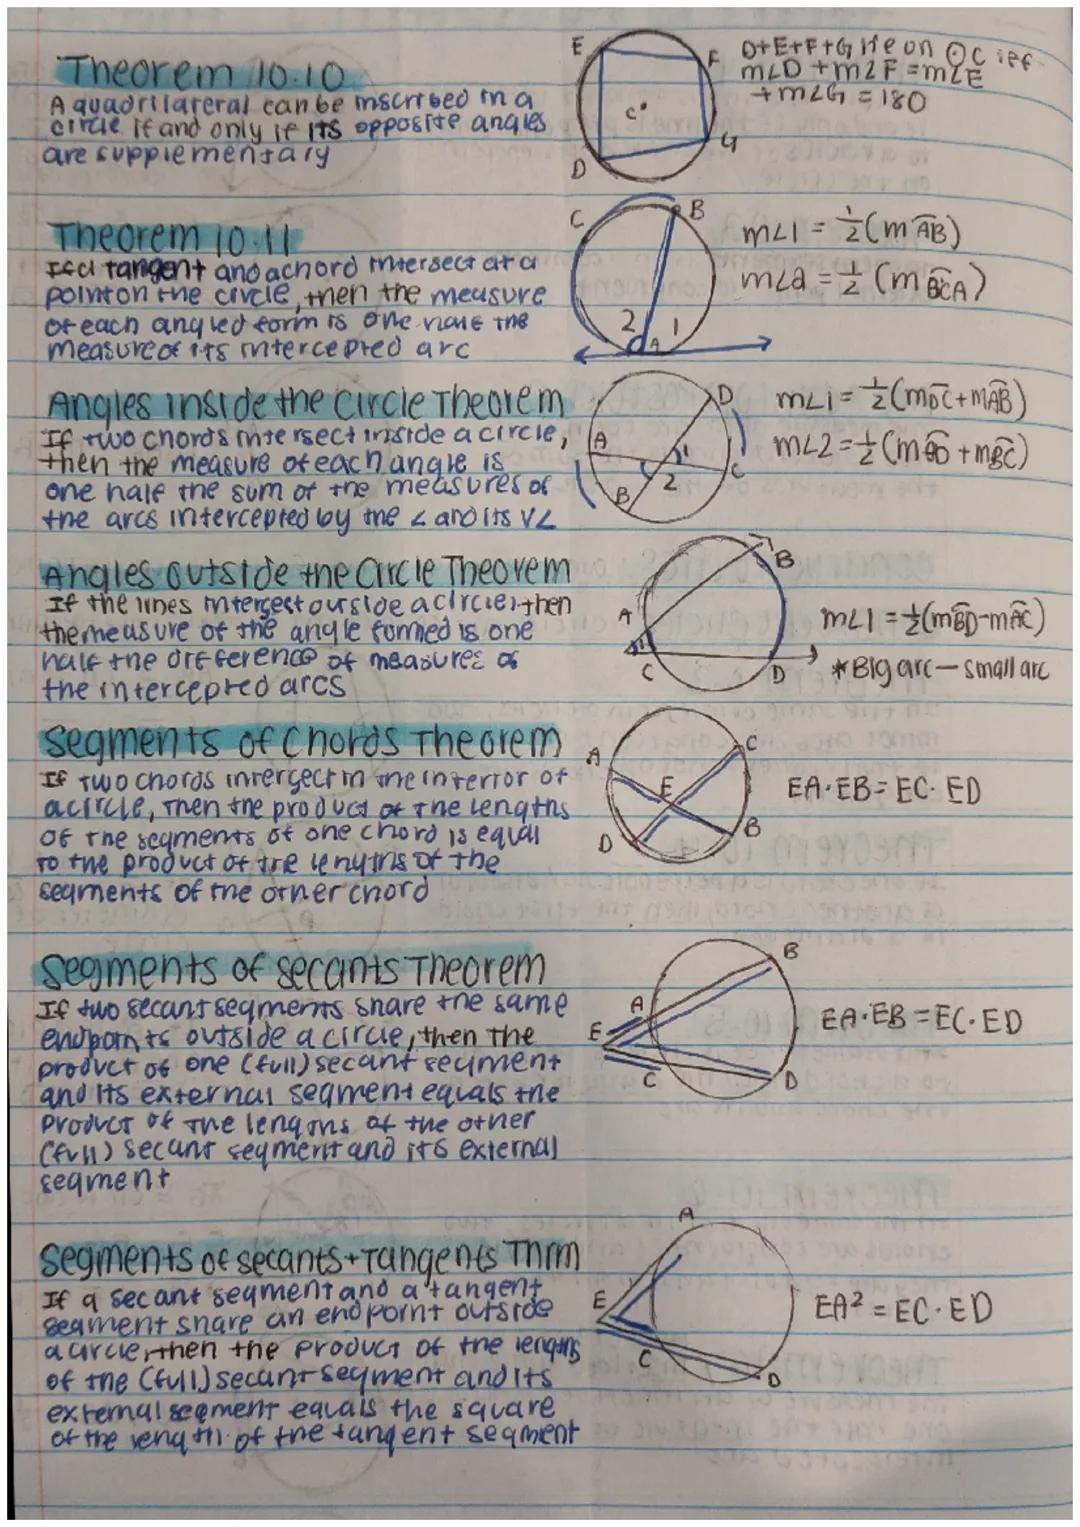 Theorem 10.10
A quadrilateral can be inscribed in a
circle if and only if its opposite angles
are supplementary
E
F
C
G
D
D+E+F+G lie on ⊙C iff
m∠D + m∠F = m∠E
+ m∠G = 180
Theorem 10.11
If a tangent and a chord intersect at a
point on the circle, then the measure
of each angled form is one-half the
measure of its intercepted arc
C
B
2
1
A
m∠1 = ½(m AB)
m∠2 = ½ (m BCA)
Angles inside the Circle Theorem
If two chords intersect inside a circle,
then the measure of each angle is
one half the sum of the measures of
the arcs intercepted by the ∠ and its V∠
D
A
1
C
2
B
m∠1 = ½(mDC + mAB)
m∠2 = ½ (m + mBC)
Angles outside the Circle Theorem
If the lines intersect outside a circle, then
the measure of the angle formed is one
half the difference of measures of
the intercepted arcs
B
A
1
C
D
m∠1 = ½(mBD - mAC)
*Big arc - small arc
Segments of Chords Theorem
If two chords intersect in the interior of
a circle, then the product of the lengths
of the segments of one chord is equal
to the product of the lengths of the
segments of the other chord
A
C
E
D
B
EA·EB = EC·ED
Segments of secants Theorem
If two secant segments share the same
endpoints outside a circle, then the
product of one (full) secant segment
and its external segment equals the
product of the lengths of the other
(full) secant segment and its external
segment
B
A
E
C
D
EA·EB = EC·ED
Segments of secants + Tangents Thrm
If a secant segment and a tangent
segment share an endpoint outside
a circle, then the product of the lengths
of the (full) secant segment and its
external segment equals the square
of the length of the tangent segment
A
E
C
D
EA² = EC·ED